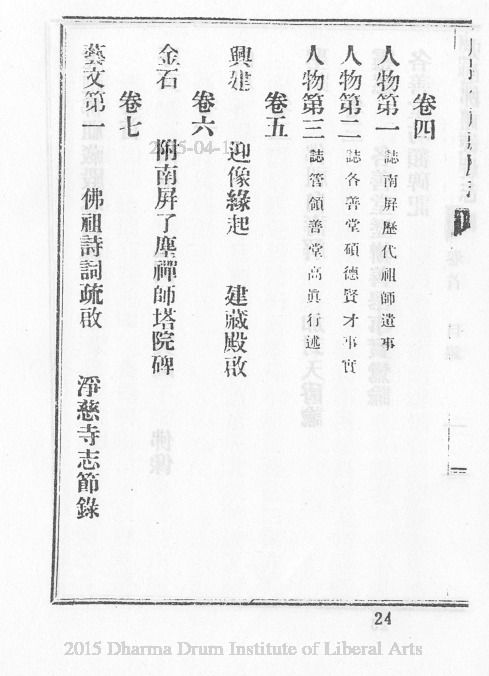 卷四
人物第一 誌南屏歷代祖師遺事
人物第二 誌各善堂碩德賢才事實
人物第三 誌管領善堂高眞行述
卷五
興建 迎像緣起 建藏殿啟
卷六
金石 附南屏了塵禪師塔院碑
卷七
藝文第一 佛祖詩詞疏啟 淨慈寺志節錄
24
2015 Dharma Drum Institute of Liberal Arts